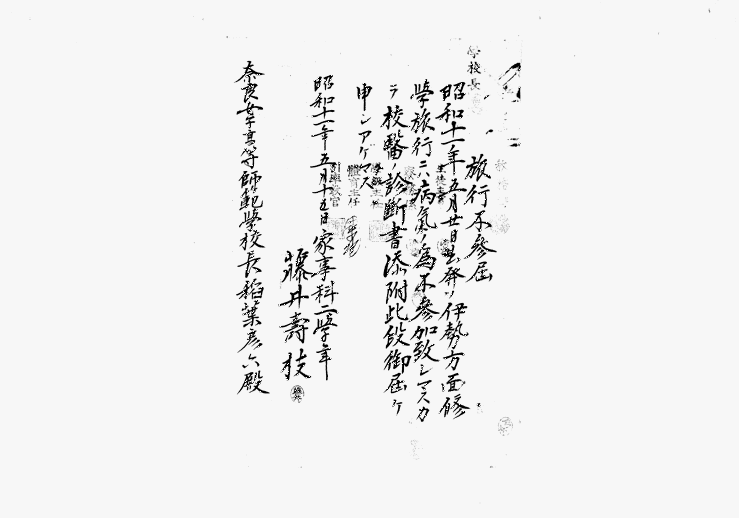 學校長
旅行不參屆
昭和十一年五月廿日出発ノ伊勢方面修
學旅行ニハ病氣ノ為不參加致シマスカ
ラ校醫ノ診断書添附此段御屆ケ
申シアゲマス
生徒主事
學級主任
體育主任
引率教官
昭和十一年五月十五日
家事科二學年
藤井壽枝
奈良女子高等師範學校長稲葉彦六殿